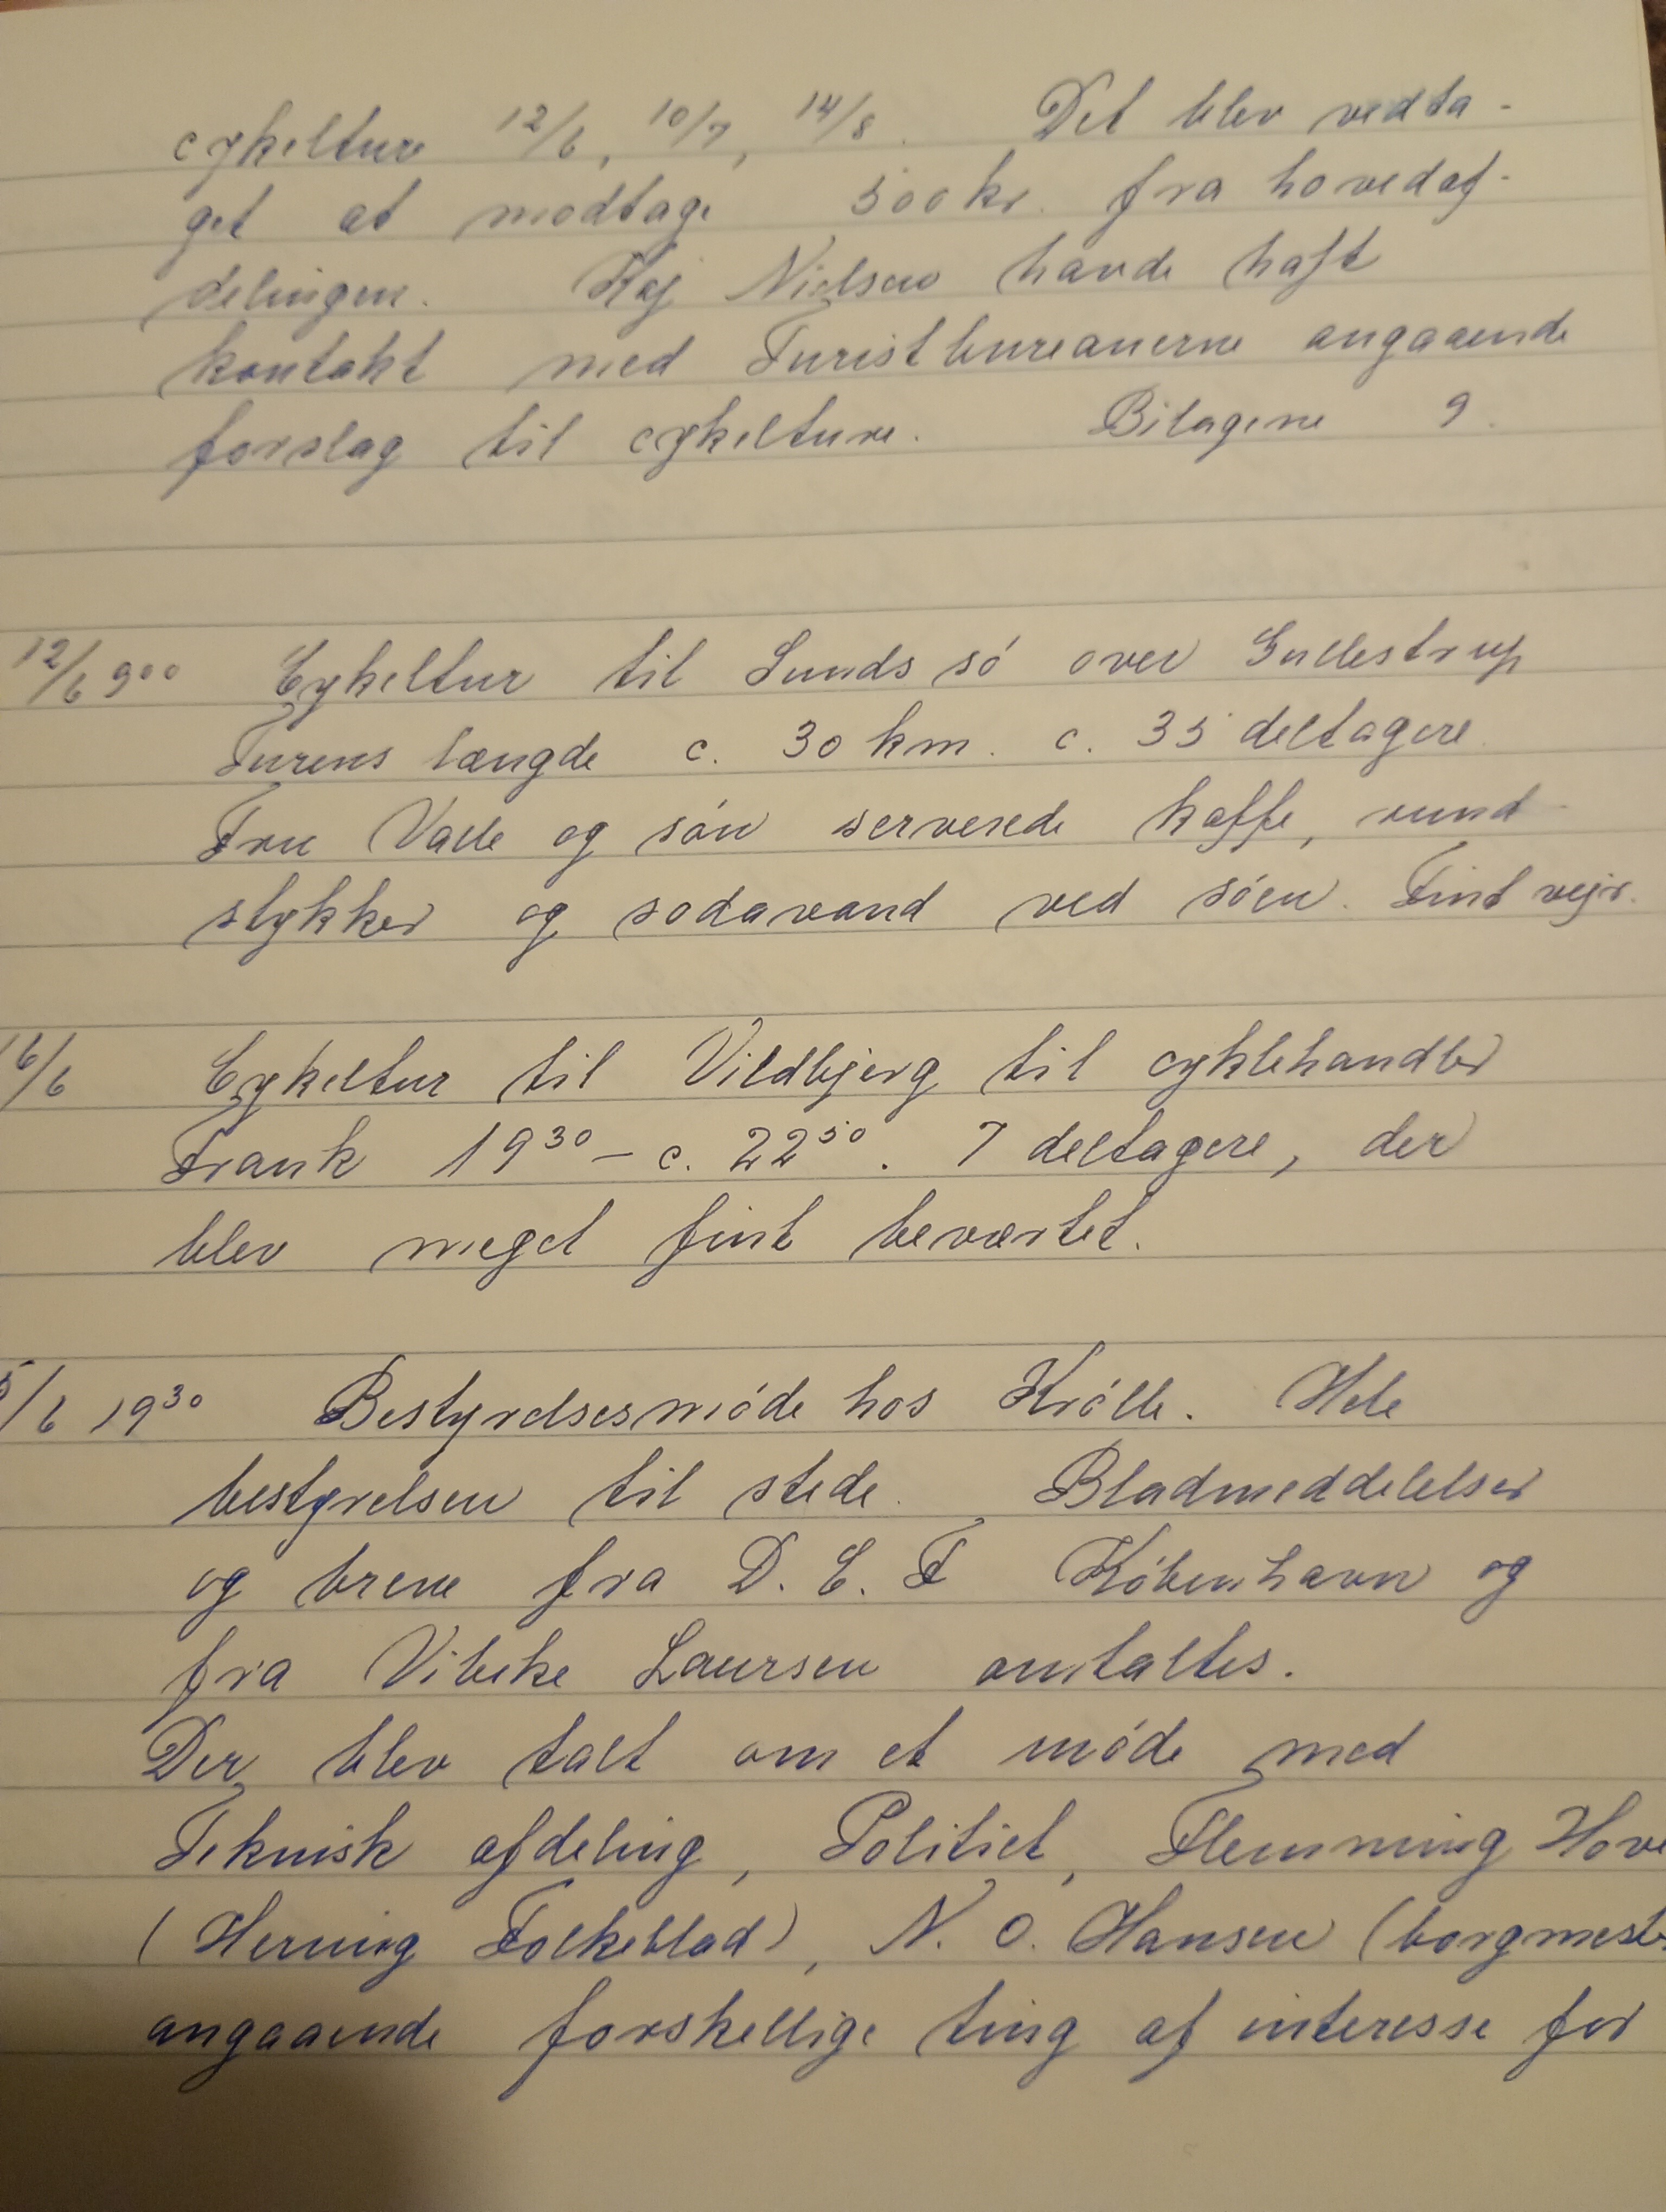 cykelture 12/6, 10/7, 14/8. Det blev vedta-
get at modtage 500 kr. fra hovedaf-
delingen. Kaj Nielsen havde haft
kontakt med Turistbureauerne angaaende
forslag til cykelture. Bilagene 9.
12/6 9⁰⁰ Cykeltur til Sunds só over Gullestrup
Turens længde c. 30 km. c. 35 deltagere.
Fru Valle og són serverede kaffe, rund-
stykker og sodavand ved sóen. Fint vejr.
16/6 Cykeltur til Vildbjerg til cyklehandler
Frank 19³⁰ – c. 22⁵⁰. 7 deltagere, der
blev meget fint beværtet.
5/6 19³⁰ Bestyrelsesmóde hos Królle. Hele
bestyrelsen til stede. Bladmeddelelser
og breve fra D. C. F København og
fra Vibeke Laursen omtaltes.
Der blev talt om et móde med
Teknisk afdeling, Politiet, Flemming Hove
(Herning Folkeblad), N. O. Hansen (borgmest
angaaende forskellige ting af interesse for